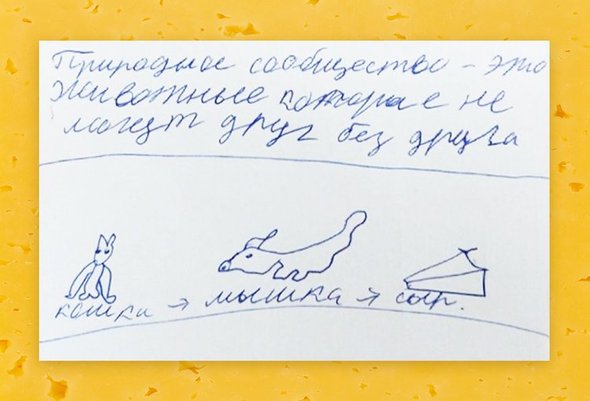 Природное сообщество – это
животные которые не
можут друг без друга
кошка → мышка → сыр.